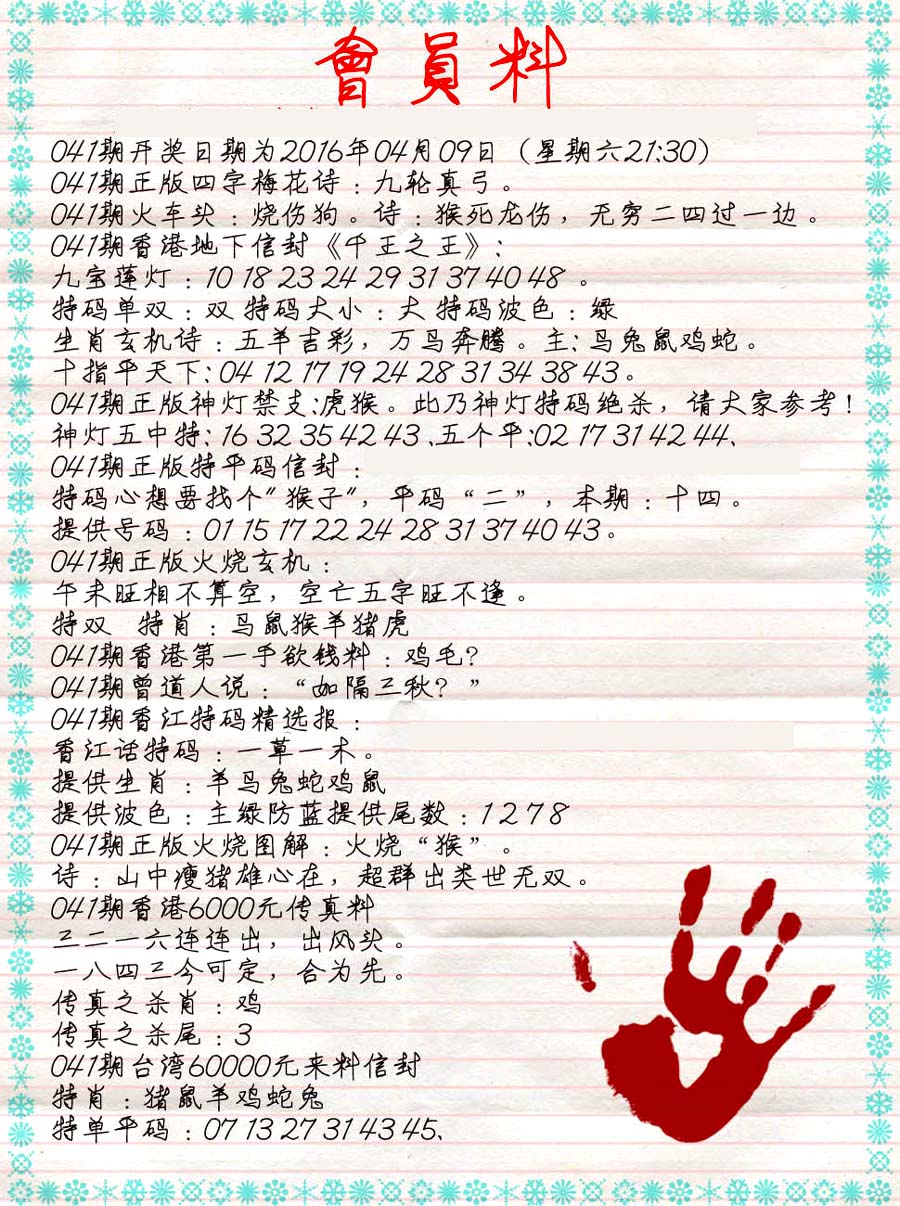 會員料
041期开奖日期为2016年04月09日（星期六21:30）
041期正版四字梅花诗：九轮真弓。
041期火车头：烧伤狗。诗：猴死龙伤，无穷二四过一边。
041期香港地下信封《千王之王》：
九宝莲灯：10 18 23 24 29 31 37 40 48 。
特码单双：双 特码大小：大 特码波色：绿
生肖玄机诗：五羊吉彩，万马奔腾。主：马兔鼠鸡蛇。
十指平天下：04 12 17 19 24 28 31 34 38 43。
041期正版神灯禁支:虎猴。此乃神灯特码绝杀，请大家参考！
神灯五中特：16 32 35 42 43 、五个平:02 17 31 42 44、
041期正版特平码信封：
特码心想要找个"猴子"，平码“二”，本期：十四。
提供号码：01 15 17 22 24 28 31 37 40 43。
041期正版火烧玄机：
午未旺相不算空，空亡五字旺不逢。
特双 特肖：马鼠猴羊猪虎
041期香港第一手欲钱料：鸡毛？
041期曾道人说：“如隔三秋？”
041期香江特码精选报：
香江话特码：一草一木。
提供生肖：羊马兔蛇鸡鼠
提供波色：主绿防蓝提供尾数：1 2 7 8
041期正版火烧图解：火烧“猴”。
诗：山中瘦猪雄心在，超群出类世无双。
041期香港6000元传真料
三二一六连连出，出风头。
一八四三今可定，合为先。
传真之杀肖：鸡
传真之杀尾：3
041期台湾60000元来料信封
特肖：猪鼠羊鸡蛇兔
特单平码：07 13 27 31 43 45、